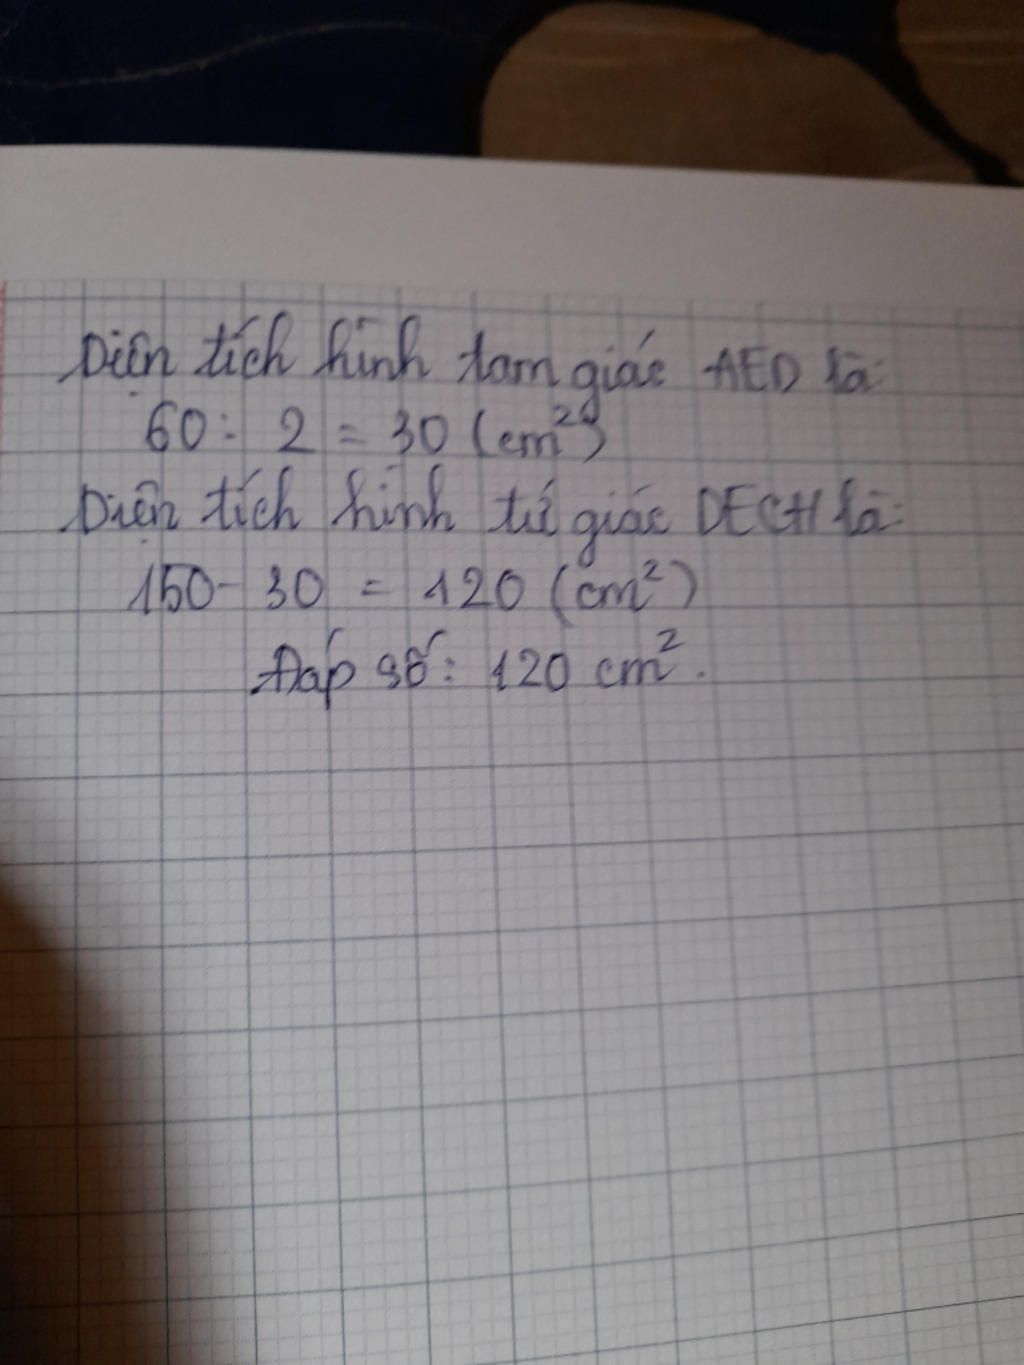 Diện tích hình tam giác AED là:
60 : 2 = 30 (cm²)
Diện tích hình tứ giác DECH là:
150 - 30 = 120 (cm²)
Đáp số : 120 cm².